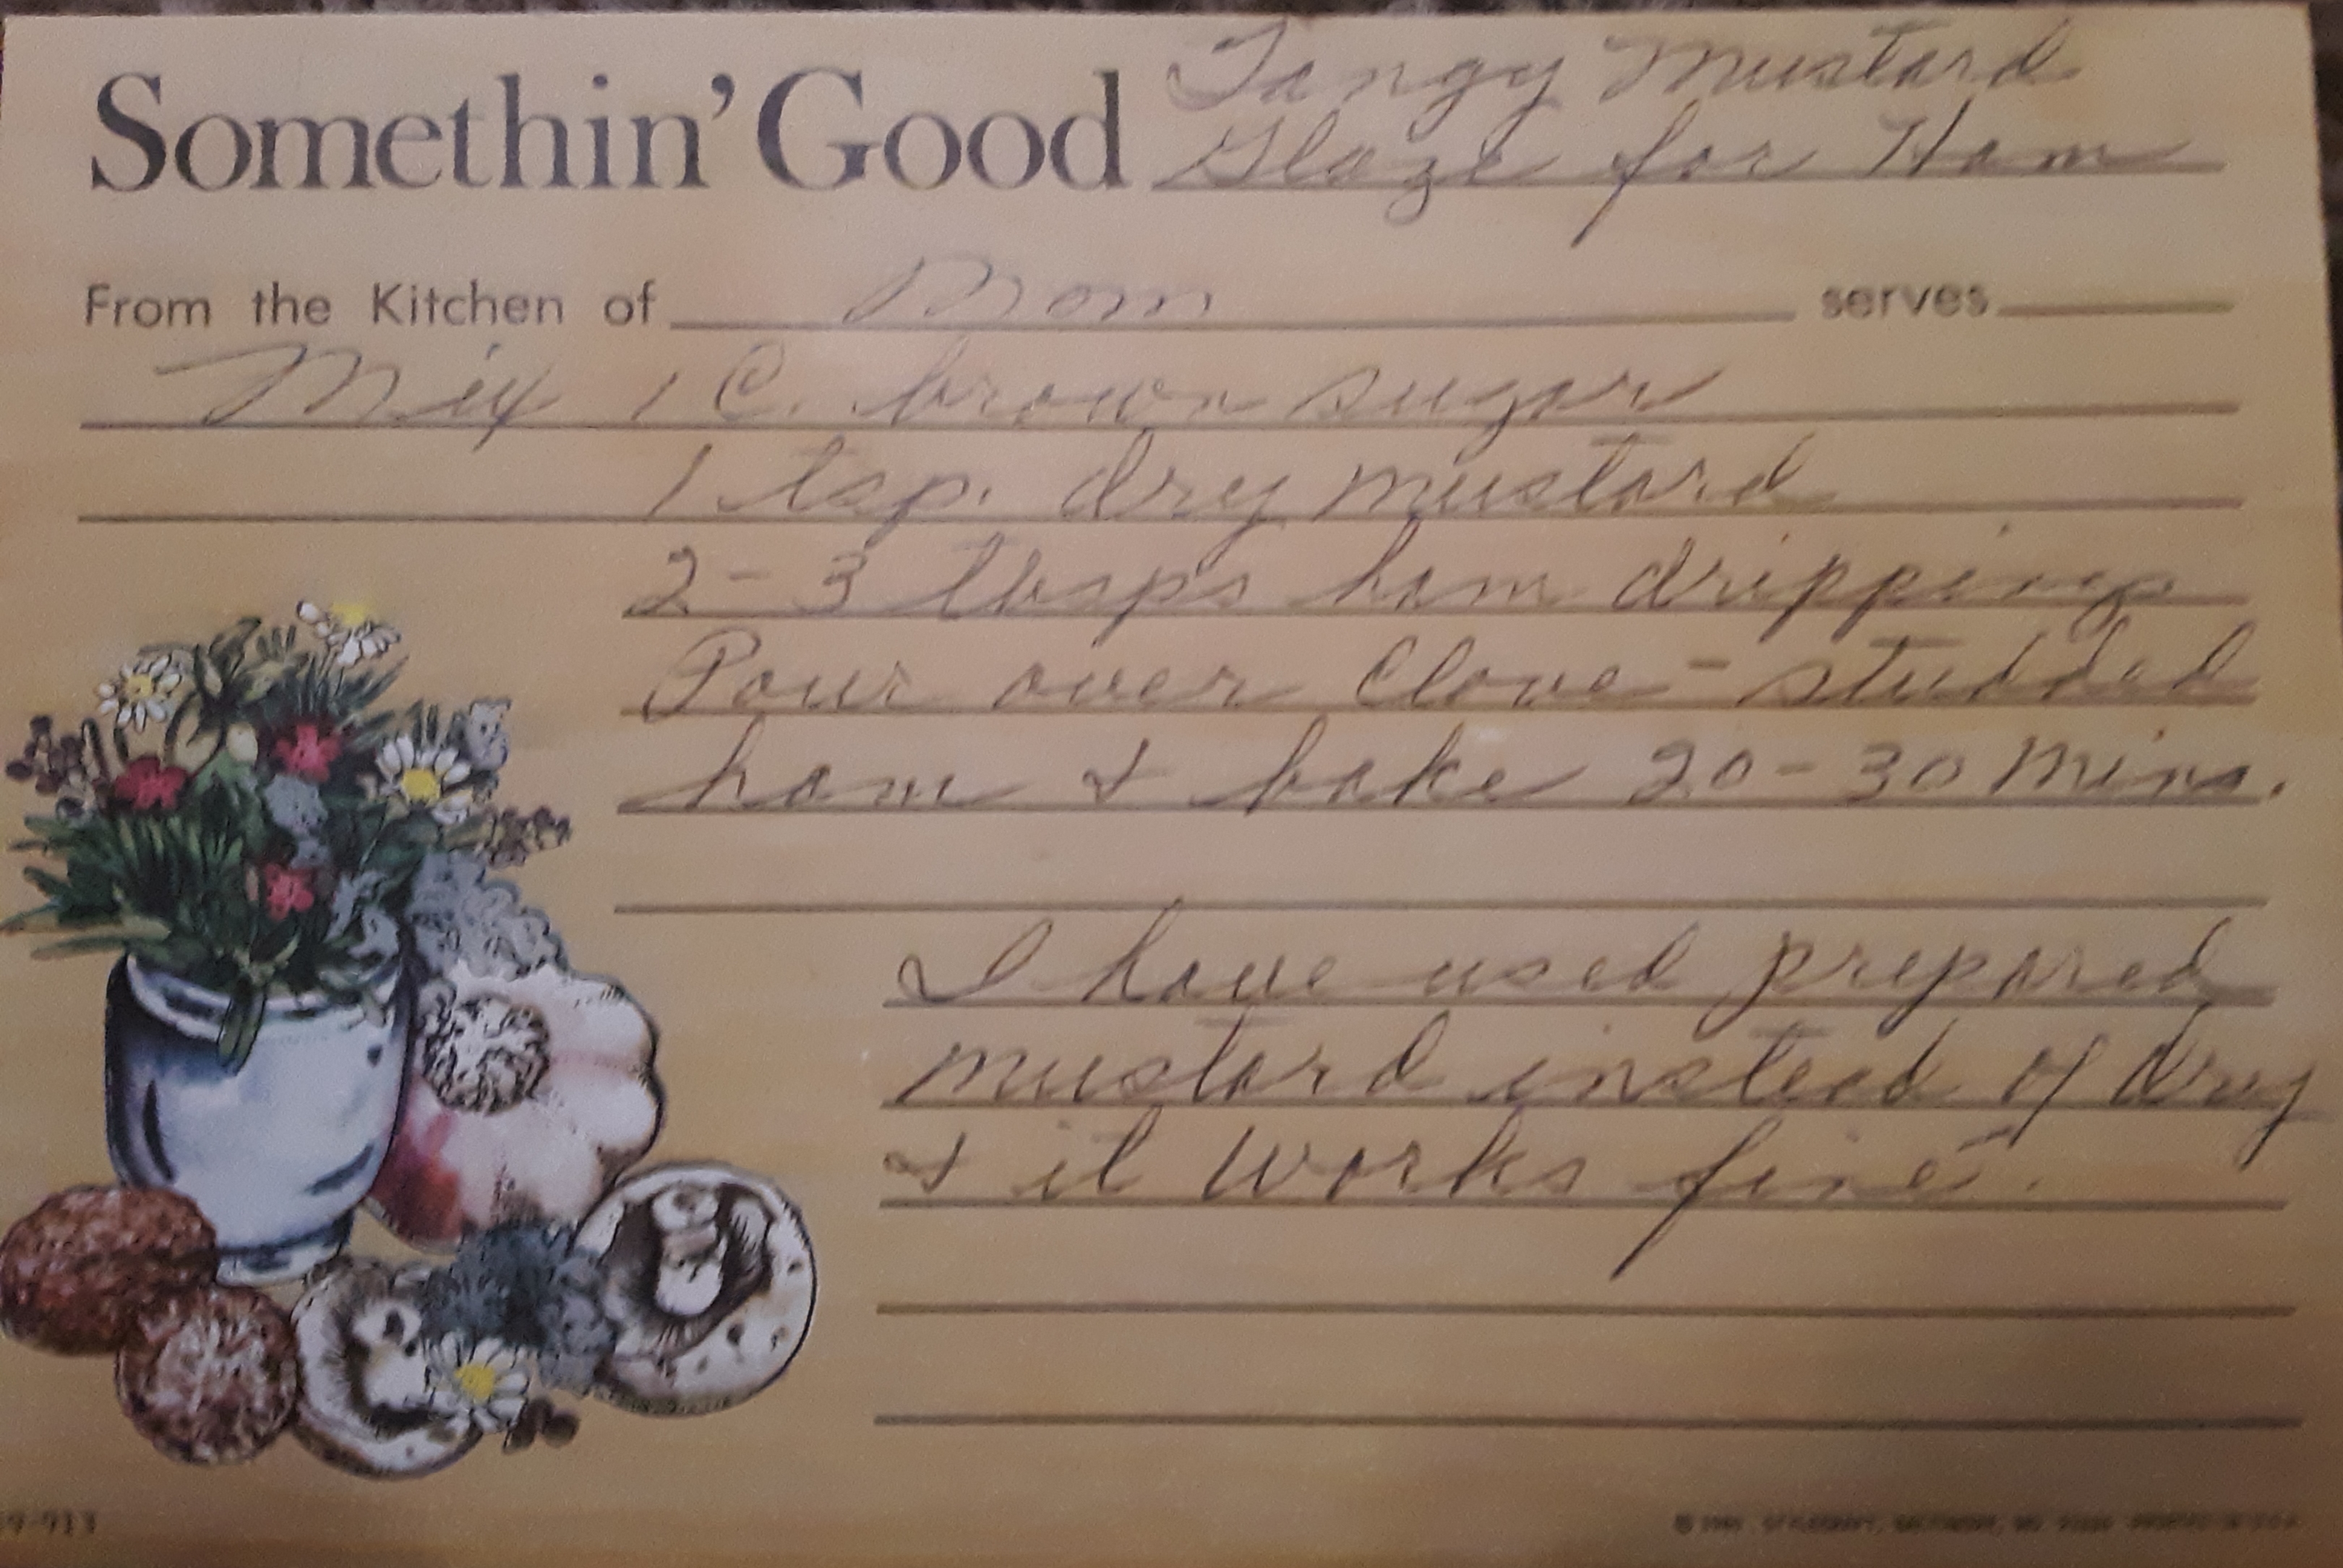 Somethin' Good Tangy Mustard
Glaze for Ham
From the Kitchen of Mom serves
Mix 1 C. brown sugar
1 tsp. dry mustard
2-3 tbsps ham dripping
Pour over Clove-studded
ham & bake 20-30 mins.
I have used prepared
mustard instead of dry
& it works fine.
9-913